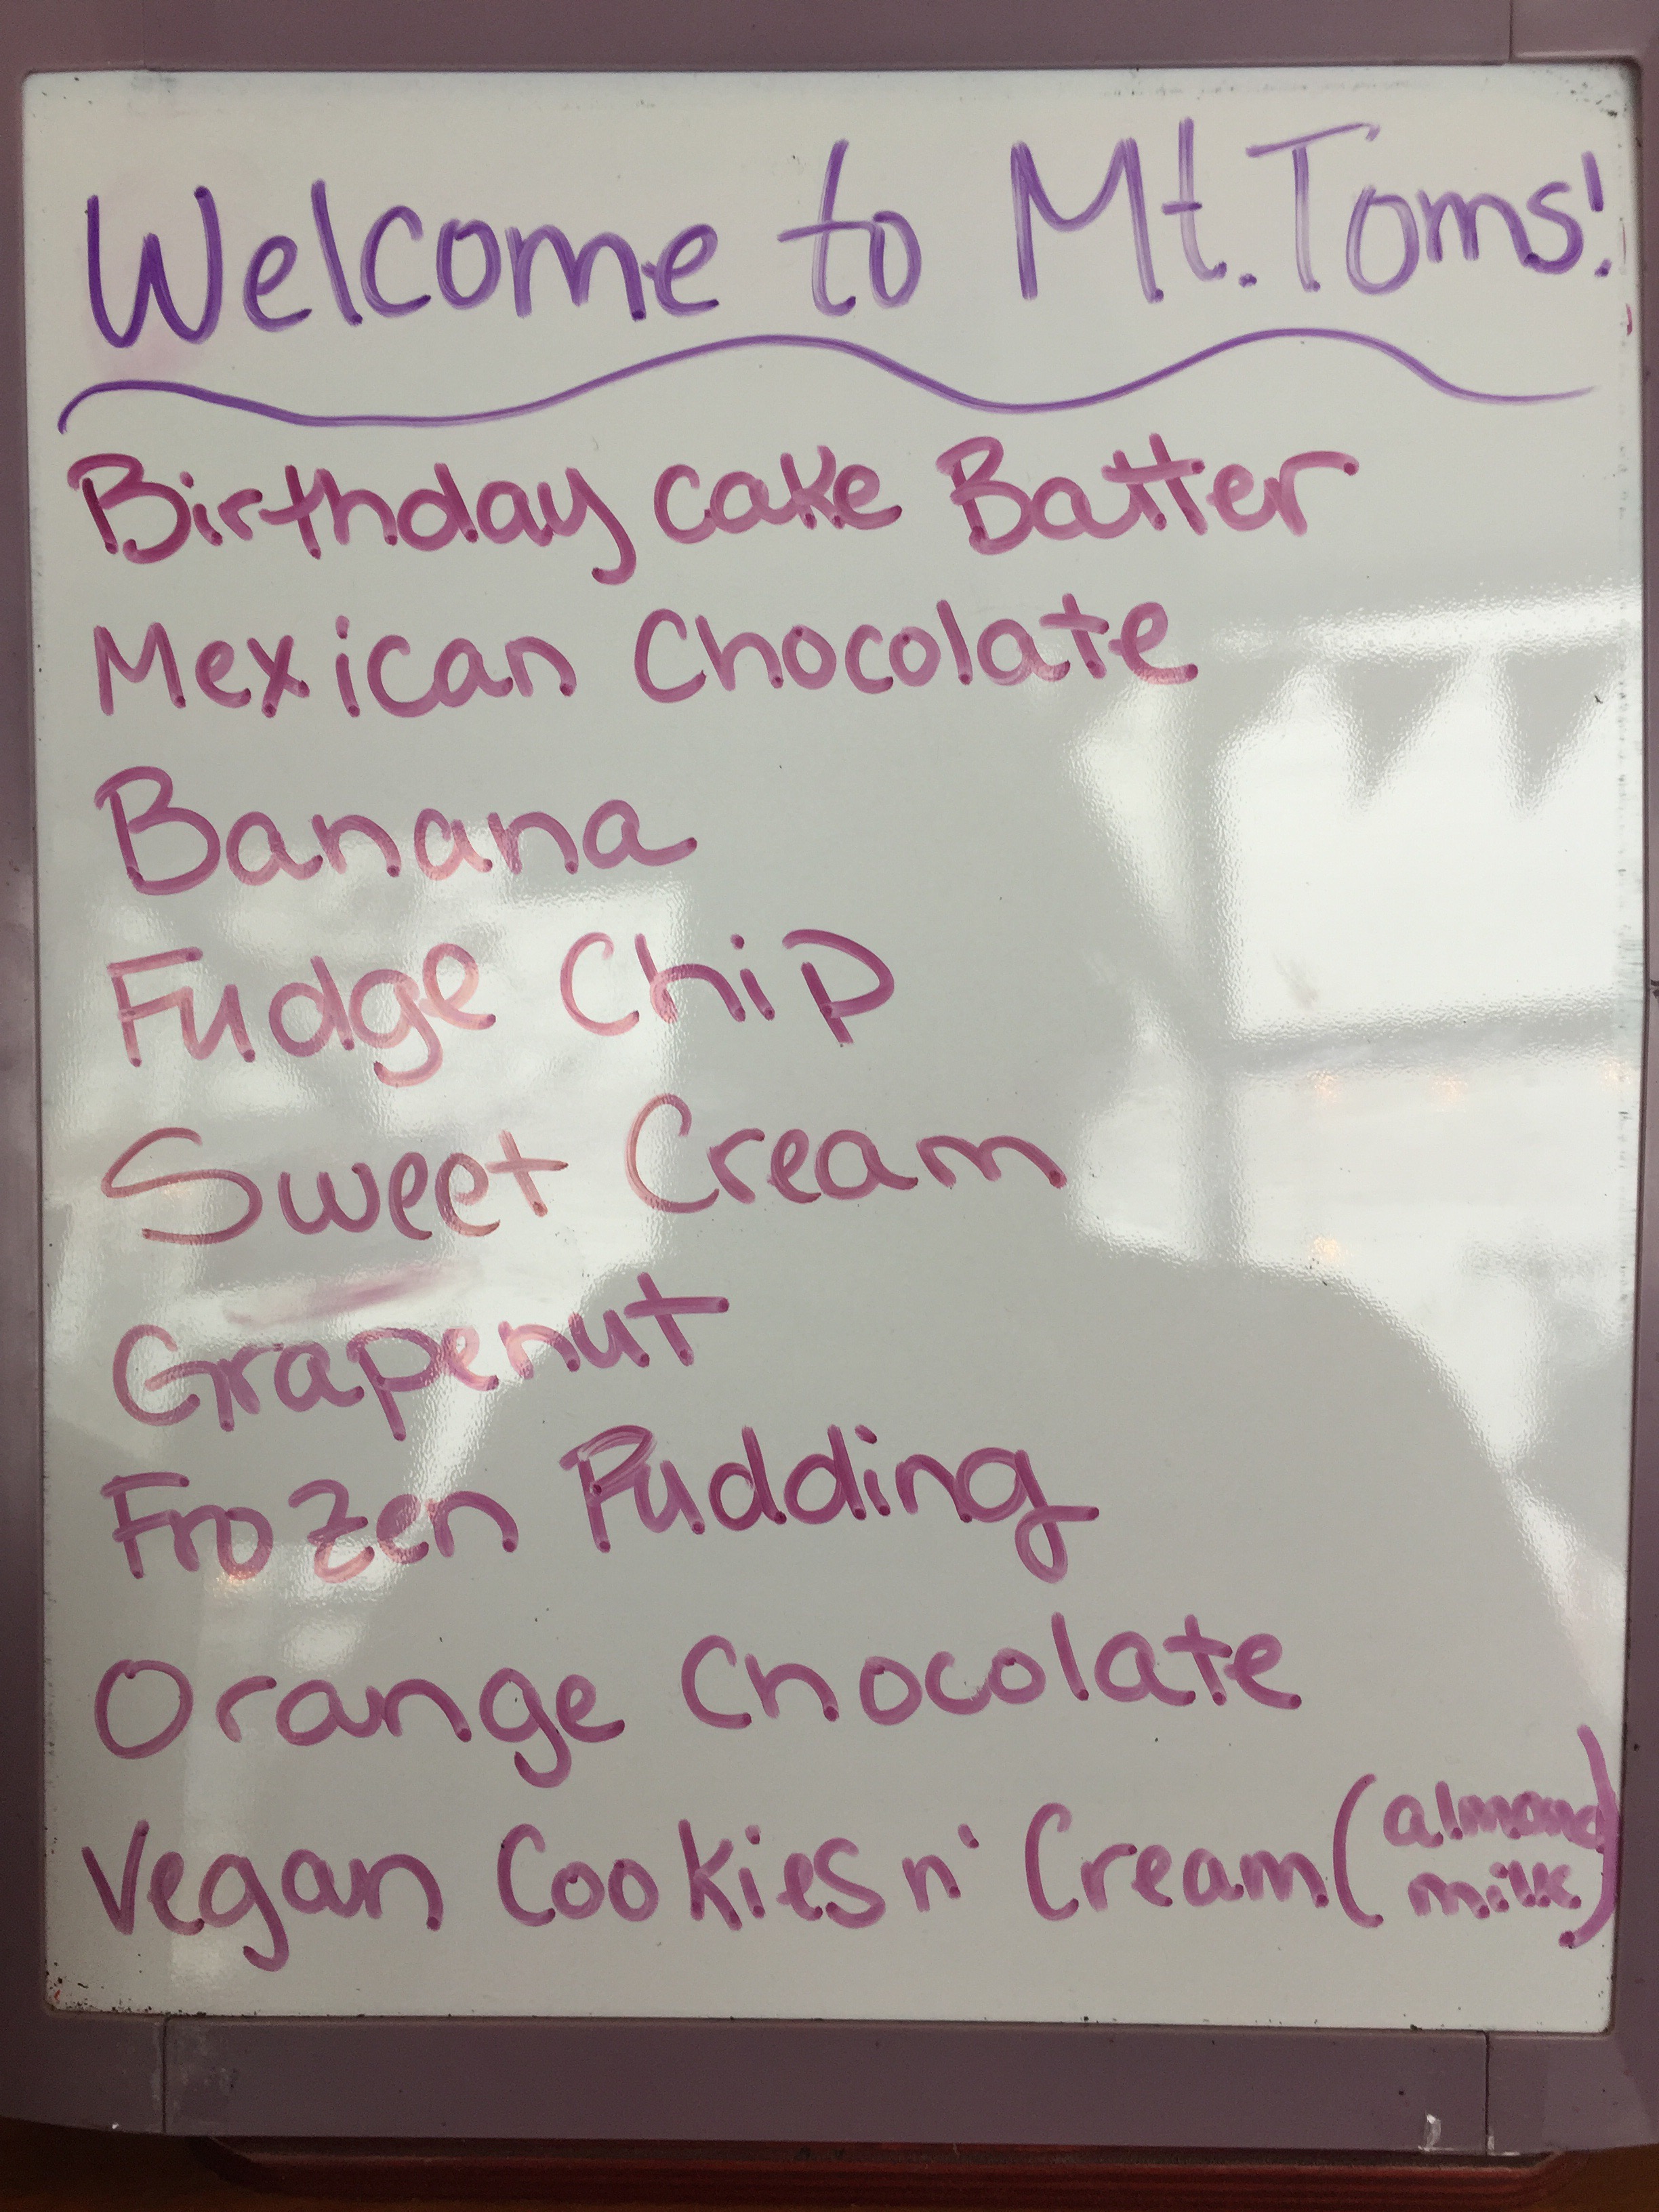 Welcome to Mt. Toms!
Birthday Cake Batter
Mexican Chocolate
Banana
Fudge Chip
Sweet Cream
Grapenut
Frozen Pudding
Orange Chocolate
Vegan Cookies n' Cream (almond milk)